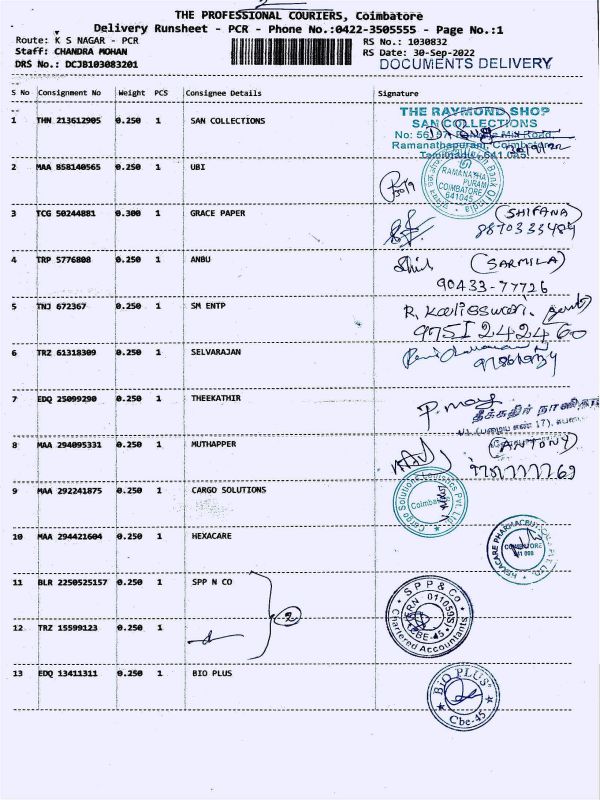 2
THE PROFESSIONAL COURIERS, Coimbatore
Delivery Runsheet - PCR - Phone No.:0422-3505555 - Page No.:1
Route: K S NAGAR - PCR RS No.: 1030832
Staff: CHANDRA MOHAN RS Date: 30-Sep-2022
DRS No.: DCJB103083201 DOCUMENTS DELIVERY
S No Consignment No Weight PCS Consignee Details Signature
1 THN 213612905 0.250 1 SAN COLLECTIONS
THE RAYMOND SHOP
SAN COLLECTIONS
Ramanathapuram, Coimbatore
Tamilnadu - 641 045
2 MAA 858140565 0.250 1 UBI
30/9
RAMANATHA
PURAM
COIMBATORE
641045
3 TCG 50244881 0.300 1 GRACE PAPER (SHIFANA)
8870333489
4 TRP 5776808 0.250 1 ANBU (SARMILA)
90433-77726
5 TNJ 672367 0.250 1 SM ENTP R. Kalieswari
9751242460
6 TRZ 61318309 0.250 1 SELVARAJAN
7 EDQ 25099290 0.250 1 THEEKATHIR
தீக்கதிர்
8 MAA 294095331 0.250 1 MUTHAPPER (ANTONY)
9 MAA 292241875 0.250 1 CARGO SOLUTIONS
Cargo Solutions Logistics Pvt. Ltd.
10 MAA 294421604 0.250 1 HEXACARE
COIMBATORE
11 BLR 2250525157 0.250 1 SPP N CO
2
SPP & Co
Chartered Accountants
CBE-45
12 TRZ 15599123 0.250 1
13 EDQ 13411311 0.250 1 BIO PLUS
BIO PLUS
Cbe-45